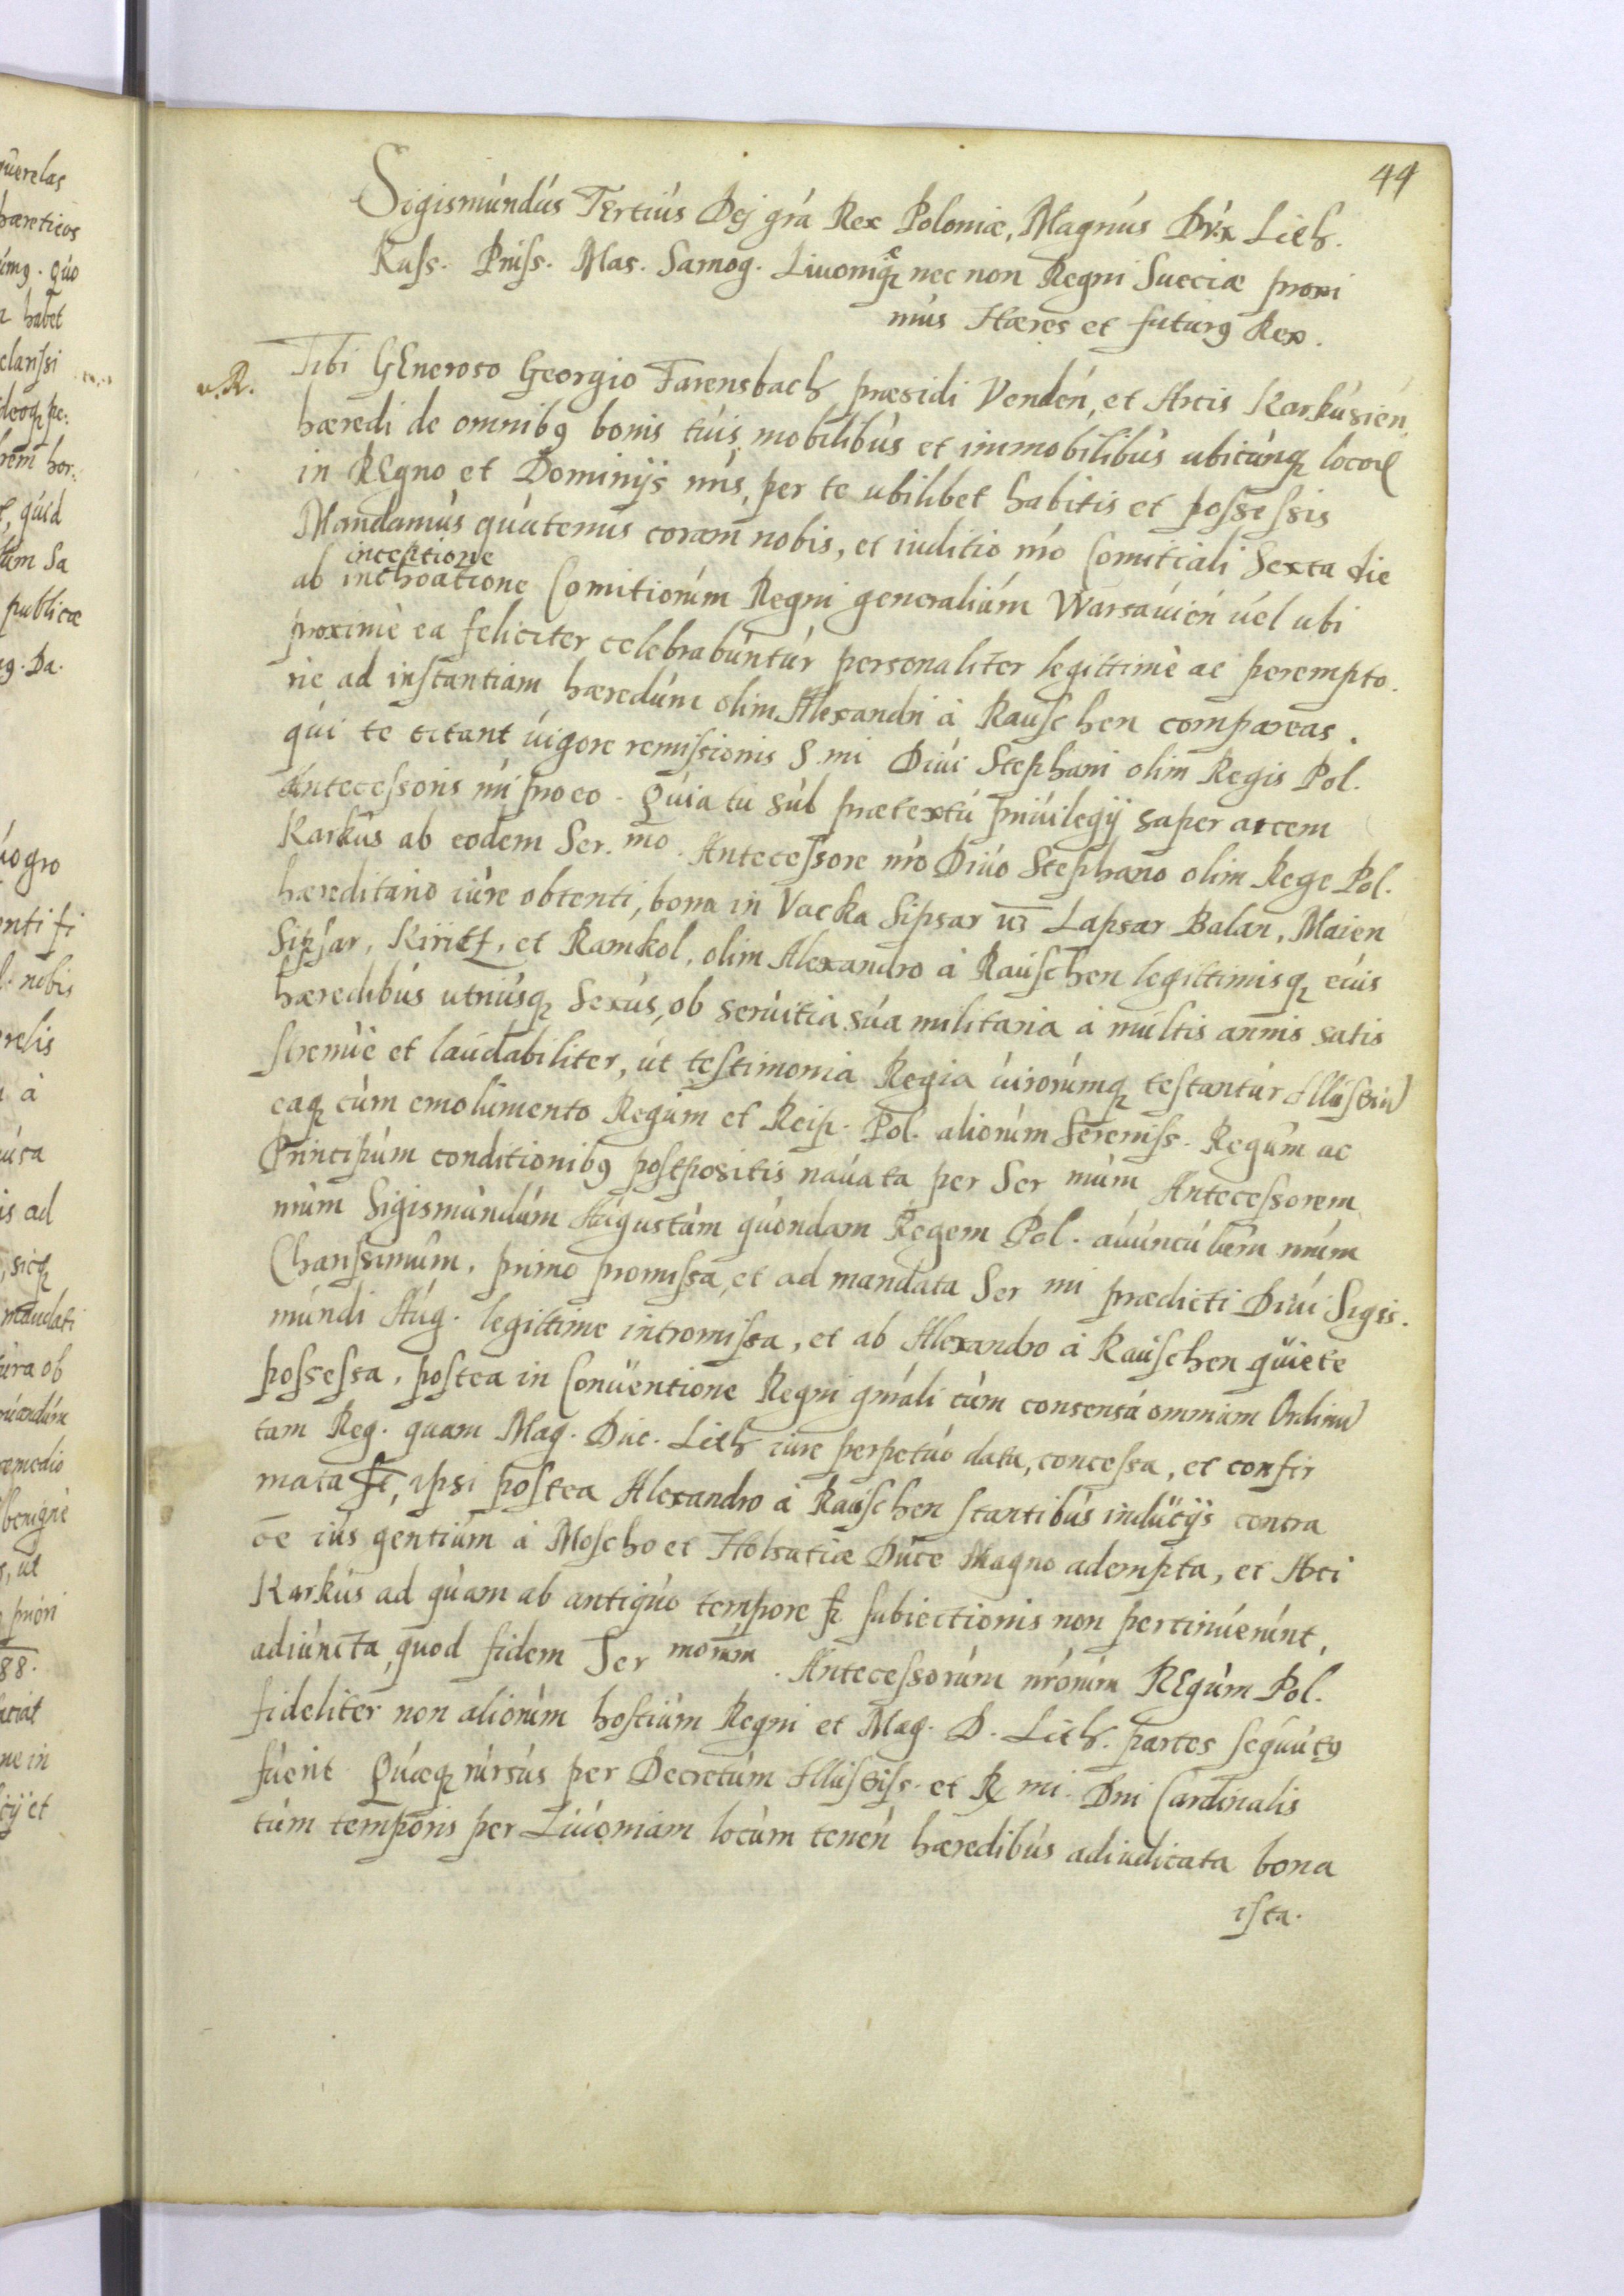 44
Sigismúndús Tertiús Dej grã Rex Poloniæ, Magnús Dux Lith.
Russ. Pruss. Mas. Samog. Livoniæq nec non Regni Sueciæ proxi
mús Hæres et futurꝰ Rex.
v. R. Tibi GEneroso Georgio Farensbach præsidi Vendeń, et Arcis Karkúsień
hæredi de omnibꝰ bonis túis mobilibús et immobilibús ubicúnqꝫ locorꝫ
in REgno et Dominijs nr̃is, per te ubilibet habitis et possessis
Mandamús quátenus coram nobis, et iuditio nr̃o Comitiali Sexta die
inceptione
ab inchoatione Comitiorúm Regni generaliúm Warsavień vel ubi
proximè ea feliciter celebrabúntúr personaliter legittimè ac perempto.
rie ad instantiam hæredúm olim Alexandri à Rauschen compareas.
qúi te citant úigore remissionis S.mi Diúi Stephani olim Regis Pol.
Antecessoris nr̃i pro eo. Qúia tú súb prætextú priúilegij super arcem
Karkús ab eodem Ser.mo. Antecessore nr̃o Diúo Stephano olim Rege Pol.
hæreditario iúre obtenti, bona in Vacka Sipsar Lapsar Balan, Maien
Sipsar, Kiritz, et Ramkol, olim Alexandro à Raúschen legittimisqꝫ eiús
hæredibús utriúsqꝫ Sexús, ob serúitia súa militaria à múltis annis satis
strenúè et laúdabiliter, út testimonia Regia úirorúmqꝫ testantúr Illústriũ
eaqꝫ cúm emolúmento Regúm et Reip. Pol. aliorúm Sereniss. Regúm ac
Principúm conditionibꝰ postpositis naúata per Ser múm Antecessorem
nr̃úm Sigismúndúm Aúgustúm qúondam Regem Pol. aúúncúlúm nr̃úm
Charissimúm, primo promissa, et ad mandata Ser mi prædicti Diúi Sigis.
múndi Aúg. legittime intromissa, et ab Alexandro à Raúschen qúiete
possessa, postea in Conúentione Regni gnr̃ali cúm consensú omniúm Ordinũ
tam Reg. quam Mag. Dúc. Lith iúre perpetúo data, concessa, et confir
mata st, ipsi postea Alexandro à Raúschen stantibús indúcijs contra
oẽ iús gentiúm à Moscho et Holsatiæ Dúce Magno adempta, et Arci
Karkús ad qúam ab antiqúo tempore subiectionis non pertinúerúnt,
adiúncta, quod fidem Ser morúm. Antecessorúm nr̃orúm REgúm Pol.
fideliter non aliorúm hostiúm Regni et Mag. D. Lith. partes seqúútꝰ
fúerit Qúæqꝫ rúrsús per Decretúm Illústriss. et R mi. Dñi Cardinalis
túm temporis per Liúoniam locúm teneń hæredibús adiudicata bona
ista.